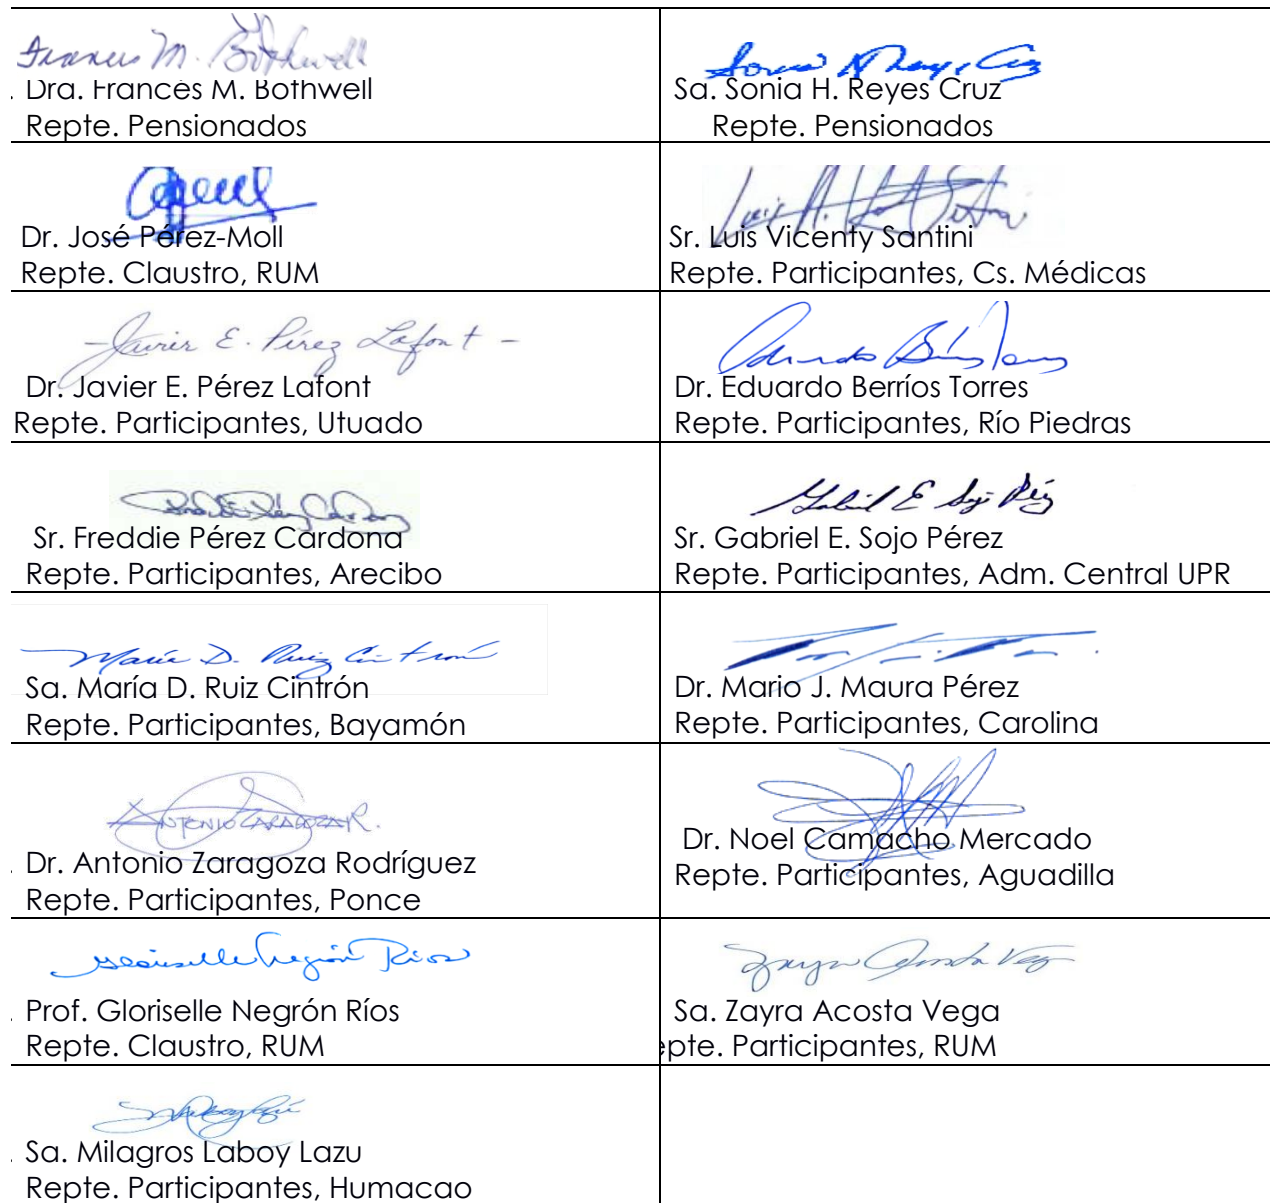 Frances M. Bothwell
. Dra. Frances M. Bothwell
Repte. Pensionados
Sa. Sonia H. Reyes Cruz
Repte. Pensionados
Dr. José Pérez-Moll
Repte. Claustro, RUM
Sr. Luis Vicenty Santini
Repte. Participantes, Cs. Médicas
- Javier E. Pérez Lafont -
Dr. Javier E. Pérez Lafont
Repte. Participantes, Utuado
Dr. Eduardo Berríos Torres
Repte. Participantes, Río Piedras
Sr. Freddie Pérez Cardona
Repte. Participantes, Arecibo
Gabriel E Sojo Pérez
Sr. Gabriel E. Sojo Pérez
Repte. Participantes, Adm. Central UPR
María D. Ruiz Cintrón
Sa. María D. Ruiz Cintrón
Repte. Participantes, Bayamón
Dr. Mario J. Maura Pérez
Repte. Participantes, Carolina
ANTONIO ZARAGOZA R.
. Dr. Antonio Zaragoza Rodríguez
Repte. Participantes, Ponce
Dr. Noel Camacho Mercado
Repte. Participantes, Aguadilla
Gloriselle Negrón Ríos
. Prof. Gloriselle Negrón Ríos
Repte. Claustro, RUM
Zayra Acosta Vega
Sa. Zayra Acosta Vega
epte. Participantes, RUM
. Sa. Milagros Laboy Lazu
Repte. Participantes, Humacao